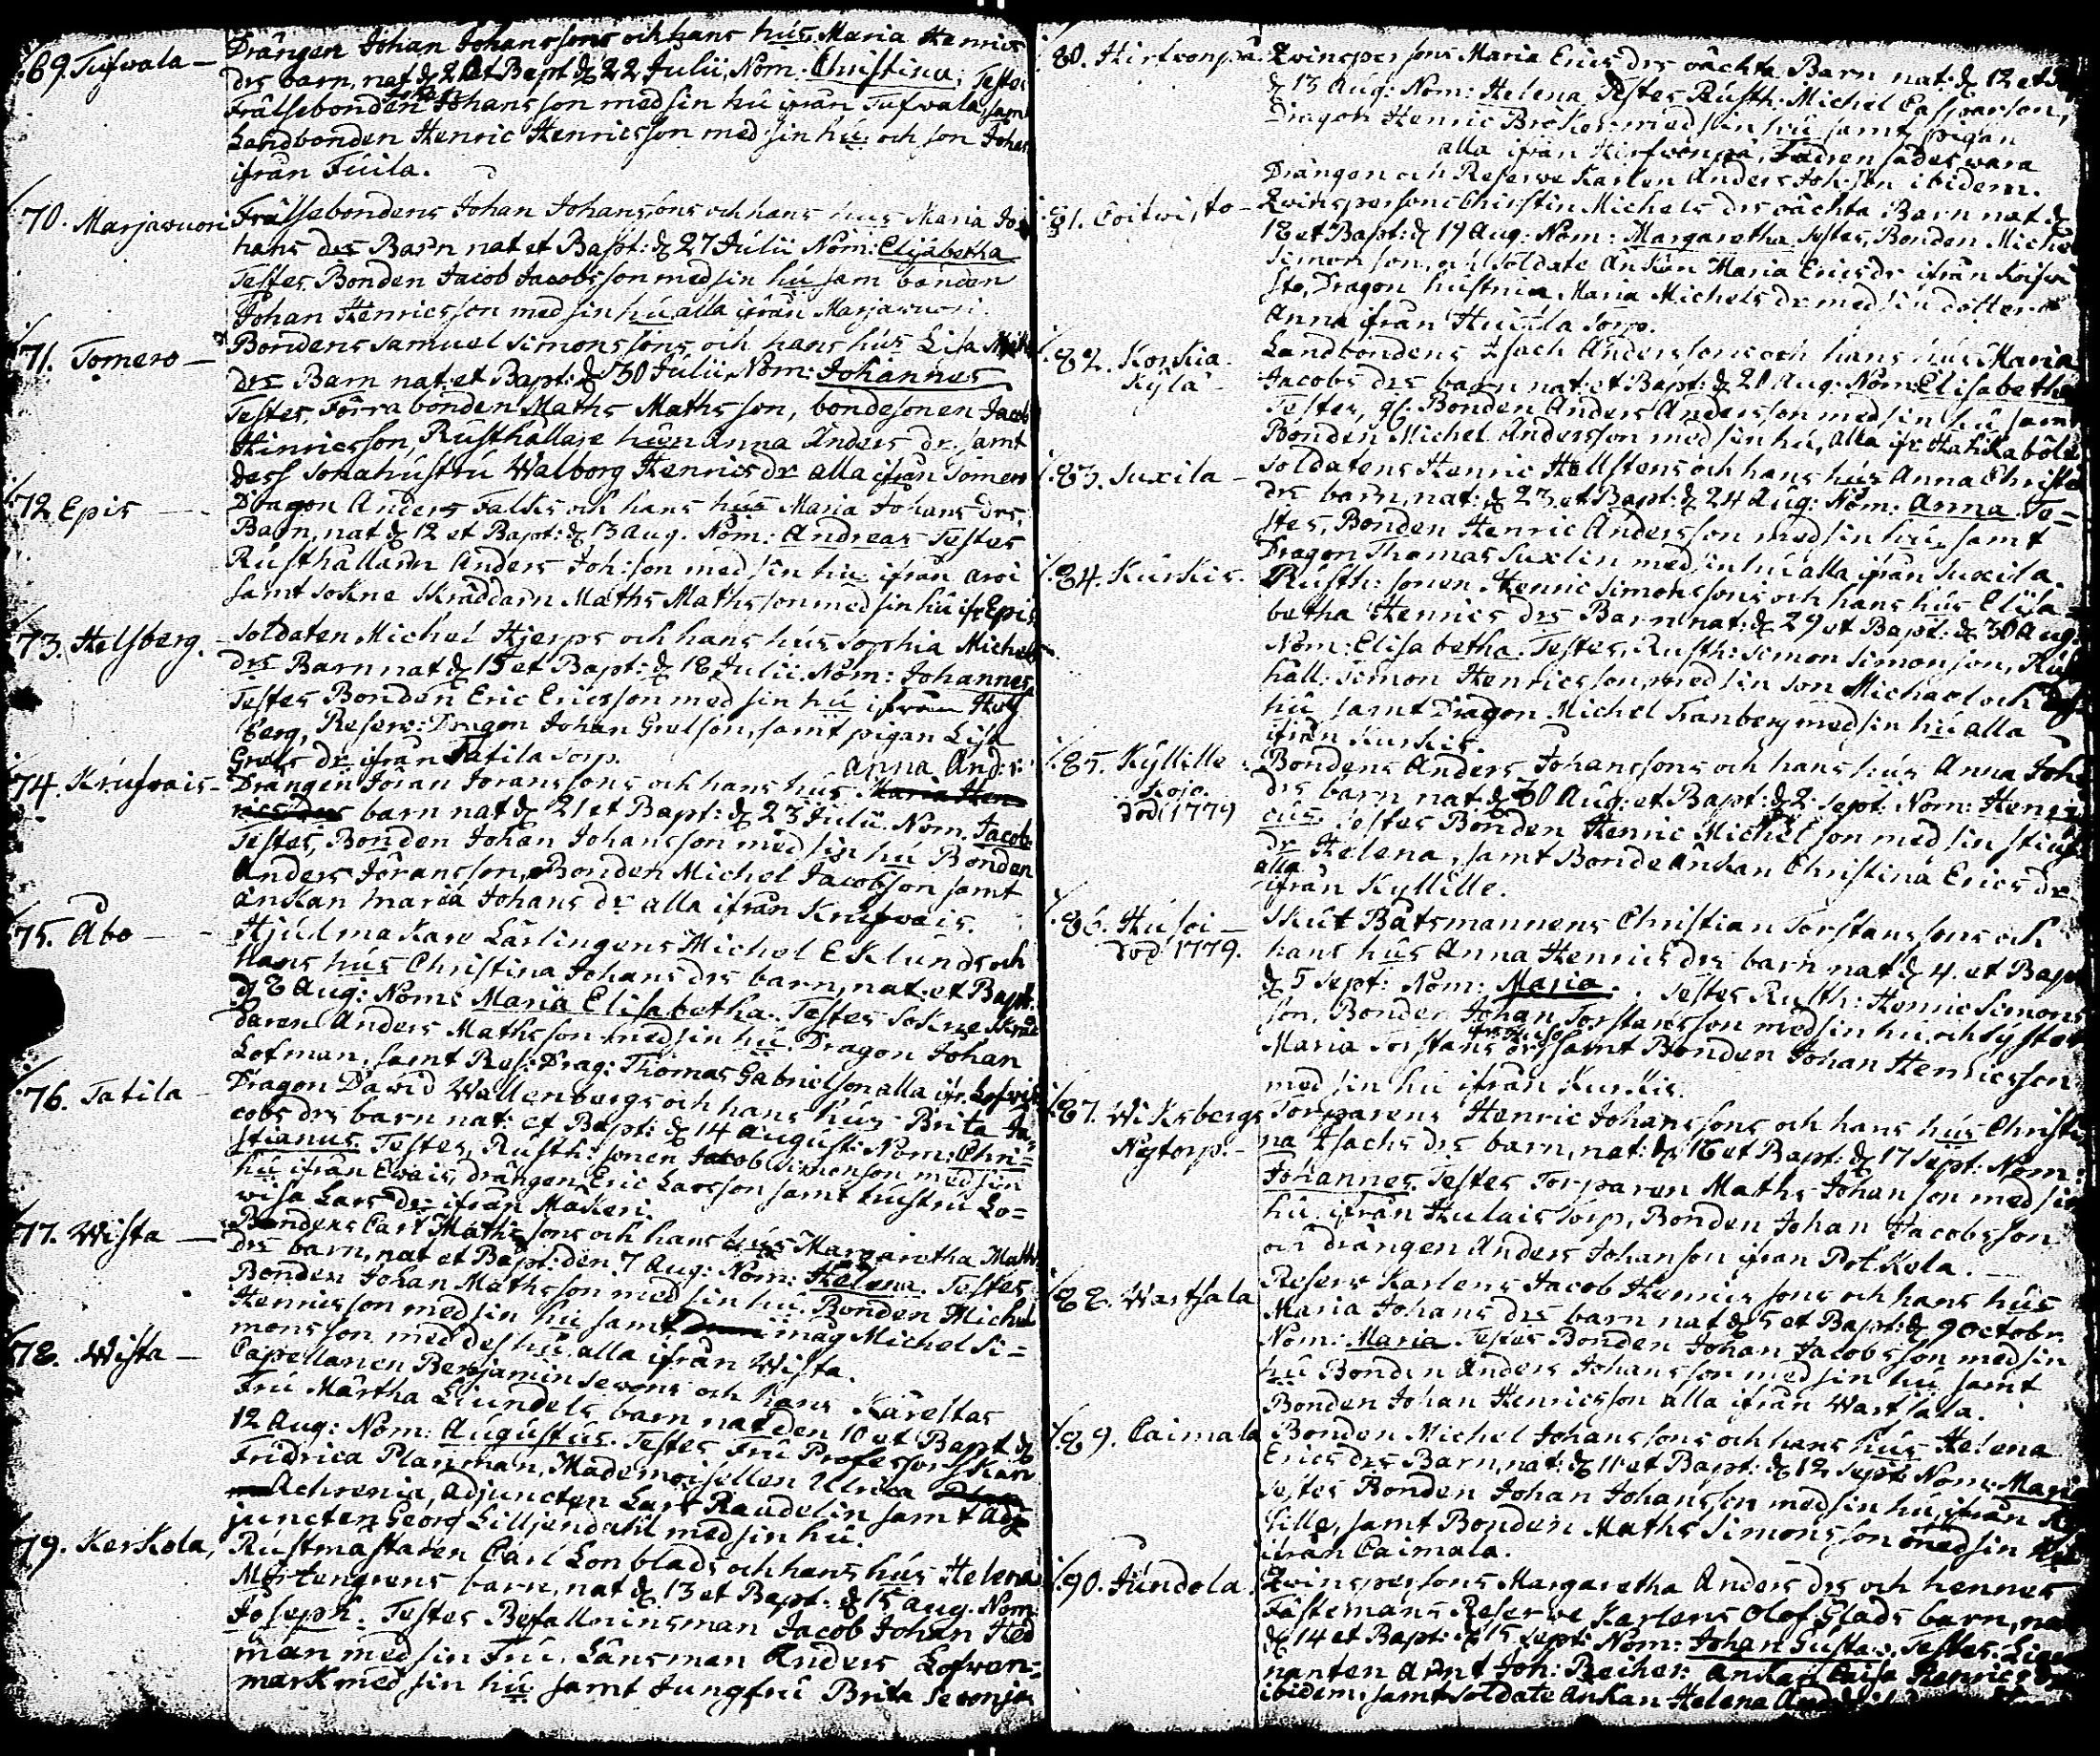 69. Tufwala — Drängen Johan Johanssons och hans hus Maria Henrics
drs barn, nat d 21 et Bapt d 22 Julii, Nom. Christina; Testes
Frälsebonden Johan Johansson med sin hu ifrån Tufwala, samt
Landbonden Henric Henricsson med sin hu och son Johan
ifrån Tuila.
70. Marjawuori Frälsebondens Johan Johanssons och hans hus Maria Jo
hans drs Barn nat et Bapt: d 27 Julii Nom: Elisabetha
Testes Bonden Jacob Jacobsson med sin hu sam bonden
Johan Henricsson med sin hu alla ifrån Marjawuori.
71. Tomero — Bondens Samuel Simonssons och hans hus Lisa
drs Barn nat et Bapt: d 30 Julii Nom: Johannes
Testes, Förra bonden Maths Mathsson, bondesonen Jacob
Hinricsson, Rusthållare hun Anna Anders dr. samt
dess sonahustru Walborg Henrics dr alla ifrån Tomero
72 Epis — Dragon Anders Falks och hans hus Maria Johans drs,
Barn, nat d 12 et Bapt: d 13 Aug. Nom: Andreas Testes
Rusthållarn Anders Joh:son med sin hu ifrån aroi
samt sokne skräddarn Maths Mathsson med sin hu ifr Epis
73. Helsberg. Soldaten Michel Hjerps och hans hus Sophia Michels
drs Barn nat d 15 et Bapt: d 18 Julii. Nom: Johannes
Testes Bonden Eric Ericsson med sin hu ifrån Hels
berg, Reserv: Dragon Johan Grelson, samt pigan Lisa
Grels dr ifrån Tatila torp.
Anna And:
74. Krufwais — Drängen Jöran Joranssons och hans hus Maria Hen
rics drs barn nat d 21 et Bapt: d 23 Julii. Nom. Jacob
Testes, Bonden Johan Johansson med sin hu Bonden
Anders Jöransson, Bonden Michel Jacobson samt
änkan Maria Johans dr alla ifrån Krufwais.
75. Åbo — Hjulmakare Lärlingens Michel Eklunds och
hans hus Christina Johans drs barn, nat: et Bapt:
d 8 Aug: Nom: Maria Elisabetha. Testes Sokne Skräd
daren Anders Mathsson med sin hu. Dragon Johan
Lofman, samt Res: Drag: Thomas Gabrielson alla ifr.
76. Tatila Dragon David Wallenbergs och hans hus Brita Ja
cobs drs barn nat: et Bapt: d 14 August: Nom: Chri=
stianus. Testes, Rusth: sonen Jacob Simonson med sin
hu ifrån Ewais, drängen Eric Larsson samt hustru Lo=
wisa Lars dr ifrån Makeri.
77. Wista — Bondens Carl Mathssons och hans hus Margaretha Maths
drs barn, nat et Bapt: den 7 Aug: Nom: Helena. Testes
Bonden Johan Mathsson med sin hu. Bonden Michel
Henricsson med sin hu samt måg Michel Si=
monsson med des hu alla ifrån Wista.
78. Wista — Capellanen Benjamin Sevons och hans Kärestas
Fru Märtha Liundels barn nat den 10 et Bapt d
12 Aug: Nom: Augustus. Testes Fru Professorskan
Fridrica Planman, Mademoisellen Ulrica
Achrenia, Adjuncten Lars Raudelin samt Adj
juncten Georg Lilljendahl med sin hu.
79. Kerkola, Rustmästaren Carl Lonblads och hans hus Helena
Mörtengrens barn, nat d 13 et Bapt: d 15 aug. Nom:
Joseph. Testes Befallninsman Jacob Johan Hed
man med sin Fru. Länsman Anders Lofwen=
mark med sin hu samt Jungfru Brita Sevonja
80. Hirfwonpä. Qvinspersons Maria Erics drs oächta Barn nat: d 12 et
d 13 Aug: Nom: Helena. Testes Rusth: Michel Casparson,
Dragon Henric Broker med sin hu samt pigan
alla ifrån Hirfwonpä, Fadren sades wara
Drängen och Reserwe Karlen Anders Joh:son ibidem.
81. Coitwisto — Qvinspersons Christin Michels drs oächta Barn nat d
18 et Bapt: d 19 Aug: Nom: Margaretha Testes, Bonden Michel
Simonsson, och Soldate Änkan Maria Erics dr ifrån Koitwi
sto, Dragon hustrun Maria Michels dr med sin dotter
Anna ifrån Huisla torp.
82. Konkia
Kylä — Landbondens Isach Anderssons och hans hus Maria
Jacobs drs barn nat: et Bapt: d 20 Aug: Nom: Elisabetha
Testes, gl: Bonden Anders Andersson med sin hu samt
Bonden Michel Andersson med sin hu, alla ifr.
83. Suxila — Soldatens Henric Hellstens och hans hus Anna Christ
drs barn, nat: d 23 et Bapt: d 24 Aug: Nom: Anna. Te=
stes, Bonden Henric Andersson med sin hu, samt
Dragon Thomas Suxlin med sin hu alla ifrån Suxila.
84. Kurkis. Rusth: sonen Henric Simonssons och hans hus Elisa
betha Henrics drs Barn nat: d 29 et Bapt: d 30 Aug:
Nom: Elisabetha. Testes, Rusth: Simon Simonson, Rust
håll: Simon Henricsson, med sin son Michael och
hu samt Dragon Michel Tranberg med sin hu alla
ifrån Kurkis.
85. Kyllille
Kojo.
död 1779 Bondens Anders Johanssons och hans hus Anna Joh
drs barn nat d 30 Aug: et Bapt: d 2 Sept: Nom: Henri
cus. Testes Bonden Henric Michelson med sin stiuf
dr Helena, samt Bonde änkan Christina Erics dr
alla ifrån Kyllille.
86. Huhoi —
död 1779. Skut Båtsmannens Christian Torstanssons och
hans hus Anna Henrics drs barn nat d 4. et Bapt
d 5 Sept: Nom: Maria. Testes Rusth: Henric Simons
son, Bonden Johan Torstansson med sin hu och syster
Maria Torstans drs samt Bonden Johan Henricsson
med sin hu ifrån Kurkis.
87. Wiksbergs
Nytorp. — Torparens Henric Johanssons och hans hus Christi
na Isachs drs barn, nat: d 16 et Bapt: d 17 Sept: Nom:
Johannes. Testes Torparen Maths Johanson med sin
hu ifrån Hulais torp, Bonden Johan Jacobsson
och drängen Anders Johanson ifrån Potkola.
88. Wartsala Reserv Karlens Jacob Henrics sons och hans hus
Maria Johans drs barn nat d 5 et Bapt: d 9 Octobr.
Nom: Maria. Testes Bonden Johan Jacobsson med sin
hu Bonden Anders Johansson med sin hu samt
Bonden Johan Henricsson alla ifrån Wartsala.
89. Caimala Bonden Michel Johanssons och hans hus Helena
Erics drs Barn, nat: d 11 et Bapt: d 12 Sept: Nom: Mari
Testes Bonden Johan Johansson med sin hu, ifrån
lille, samt Bonden Maths Simonsson med sin
ifrån Caimala.
90. Jundola. Qvinspersons Margaretha Anders drs och hennes
Fästemans Reserwe Karlens Olof Glads barn, nat
d 14 et Bapt: d 15 Sept: Nom: Johan Gusta:. Testes. Lieu
nanten Arnt Joh: Reiher: änkan Caisa Henrics
ibidem, samt Soldate änkan Helena